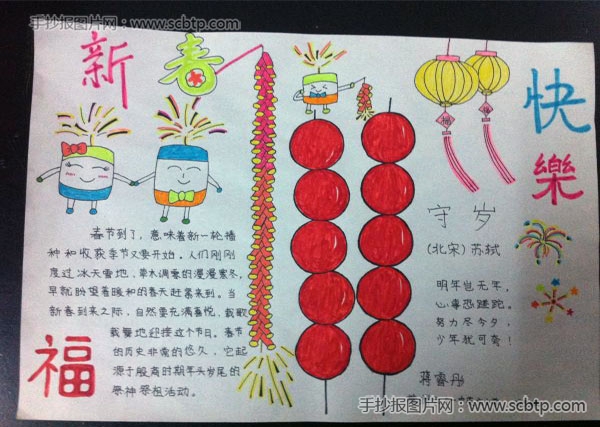 手抄报图片网：www.scbtp.com
新春
快樂
春节到了，意味着新一轮播
种和收获季节又要开始。人们刚刚
度过冰天雪地，草木凋零的漫漫寒冬，
早就盼望着暖和的春天赶紧来到。当
新春到来之际，自然要充满喜悦，载歌
载舞地迎接这个节日。春节
的历史非常的悠久，它起
源于殷商时期年头岁尾的
祭神祭祖活动。
福
福
福
守岁
(北宋)苏轼
明年岂无年，
心事恐蹉跎。
努力尽今夕，
少年犹可夸！
蒋睿彤
手抄报图片网：www.scbtp.com